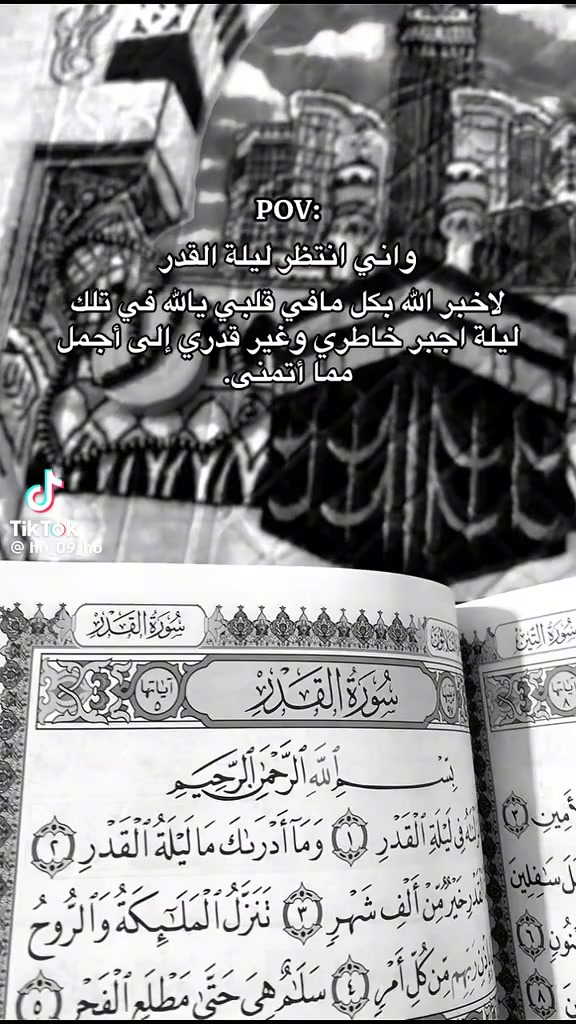 POV:
واني انتظر ليلة القدر
لاخبر الله بكل مافي قلبي يالله في تلك
ليلة اجبر خاطري وغير قدري إلى أجمل
مما أتمنى.
TikTok
سُورَةُ القَدْرِ
سُورَةُ التِّينِ
سُورَةُ القَدْرِ
آياتها ٥
آياتها ٨
بِسْمِ ٱللَّهِ ٱلرَّحْمَٰنِ ٱلرَّحِيمِ
فِى لَيْلَةِ ٱلْقَدْرِ ١ وَمَآ أَدْرَىٰكَ مَا لَيْلَةُ ٱلْقَدْرِ ٢
خَيْرٌ مِّنْ أَلْفِ شَهْرٍ ٣ تَنَزَّلُ ٱلْمَلَٰٓئِكَةُ وَٱلرُّوحُ
رَبِّهِم مِّن كُلِّ أَمْرٍ ٤ سَلَٰمٌ هِىَ حَتَّىٰ مَطْلَعِ ٱلْفَجْرِ ٥
٣
سَٰفِلِينَ
٦
٨